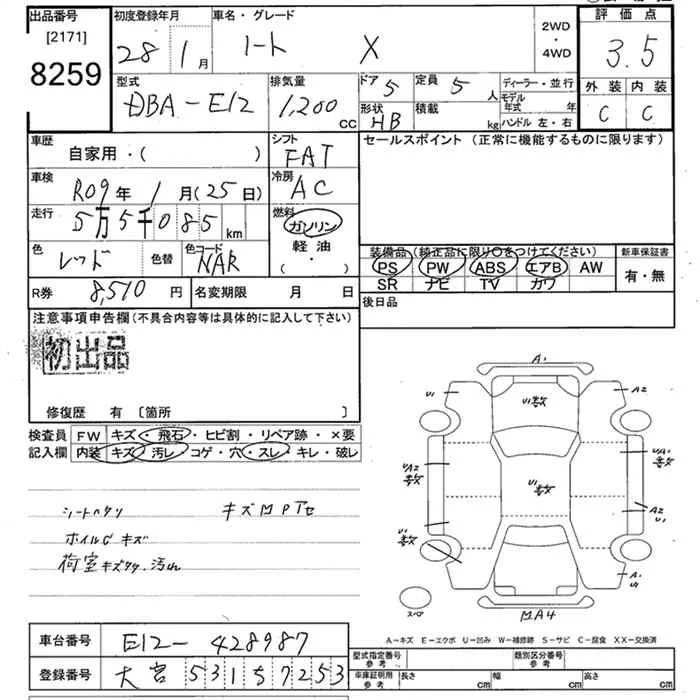 出品番号
[2171]
8259
初度登録年月
28 1 月
車名・グレード
ノート X
2WD
・
4WD
評価点
3.5
外装 内装
C C
型式
DBA-E12
排気量
1,200 CC
ドア 5
定員 5 人
形状 HB
積載 kg
ディーラー・並行
モデル年式 年
ハンドル 左・右
車歴
自家用・( )
シフト
FAT
セールスポイント(正常に機能するものに限ります)
車検
R09年 1月(25日)
冷房
AC
走行
5万5千085 km
燃料
ガソリン
軽油
( ・ )
色
レッド 色替
色コード
NAR
装備品(純正品に限り○をつけてください)
PS PW ABS エアB AW
SR ナビ TV カワ
新車保証書
有・無
R券 8,510 円
名変期限 月 日
後日品
注意事項申告欄(不具合内容等は具体的に記入して下さい)
初出品
修復歴 有 〔箇所 〕
検査員記入欄
FW キズ・飛石・ヒビ割・リペア跡・×要
内装 キズ・汚レ・コゲ・穴・スレ・キレ・破レ
シートヘタリ
ホイルG キズ
荷室キズ.汚れ
A1
U1
U1数
A2
UA2
数
U1数
UA1
数
U1
数
A2
U1
A1
スペア
MA4
A-キズ E-エクボ U-凹み W-補修跡 S-サビ C-腐食 XX-交換済
車台番号 E12-428987
登録番号 大宮 531 5 7253
型式指定番号
参考
類別区分番号
参考
車庫証明用
参考
長さ cm
幅 cm
高さ cm